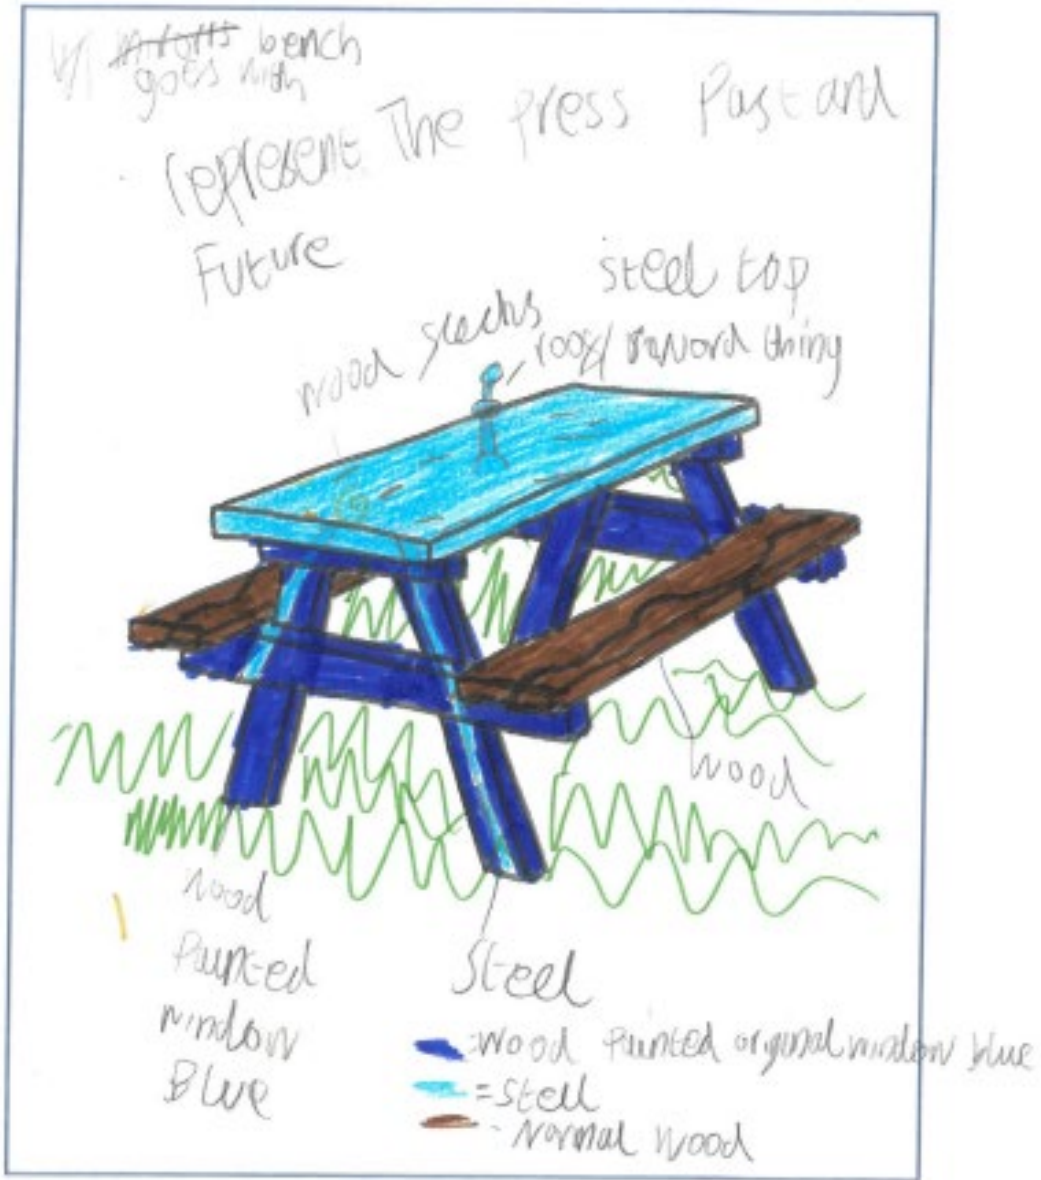 bench
goes with
represent The press Past and
Future
steel top
wood specks
thing
wood
wood
Painted
window
Blue
Steel
=wood Painted original window blue
=Steel
- Normal wood